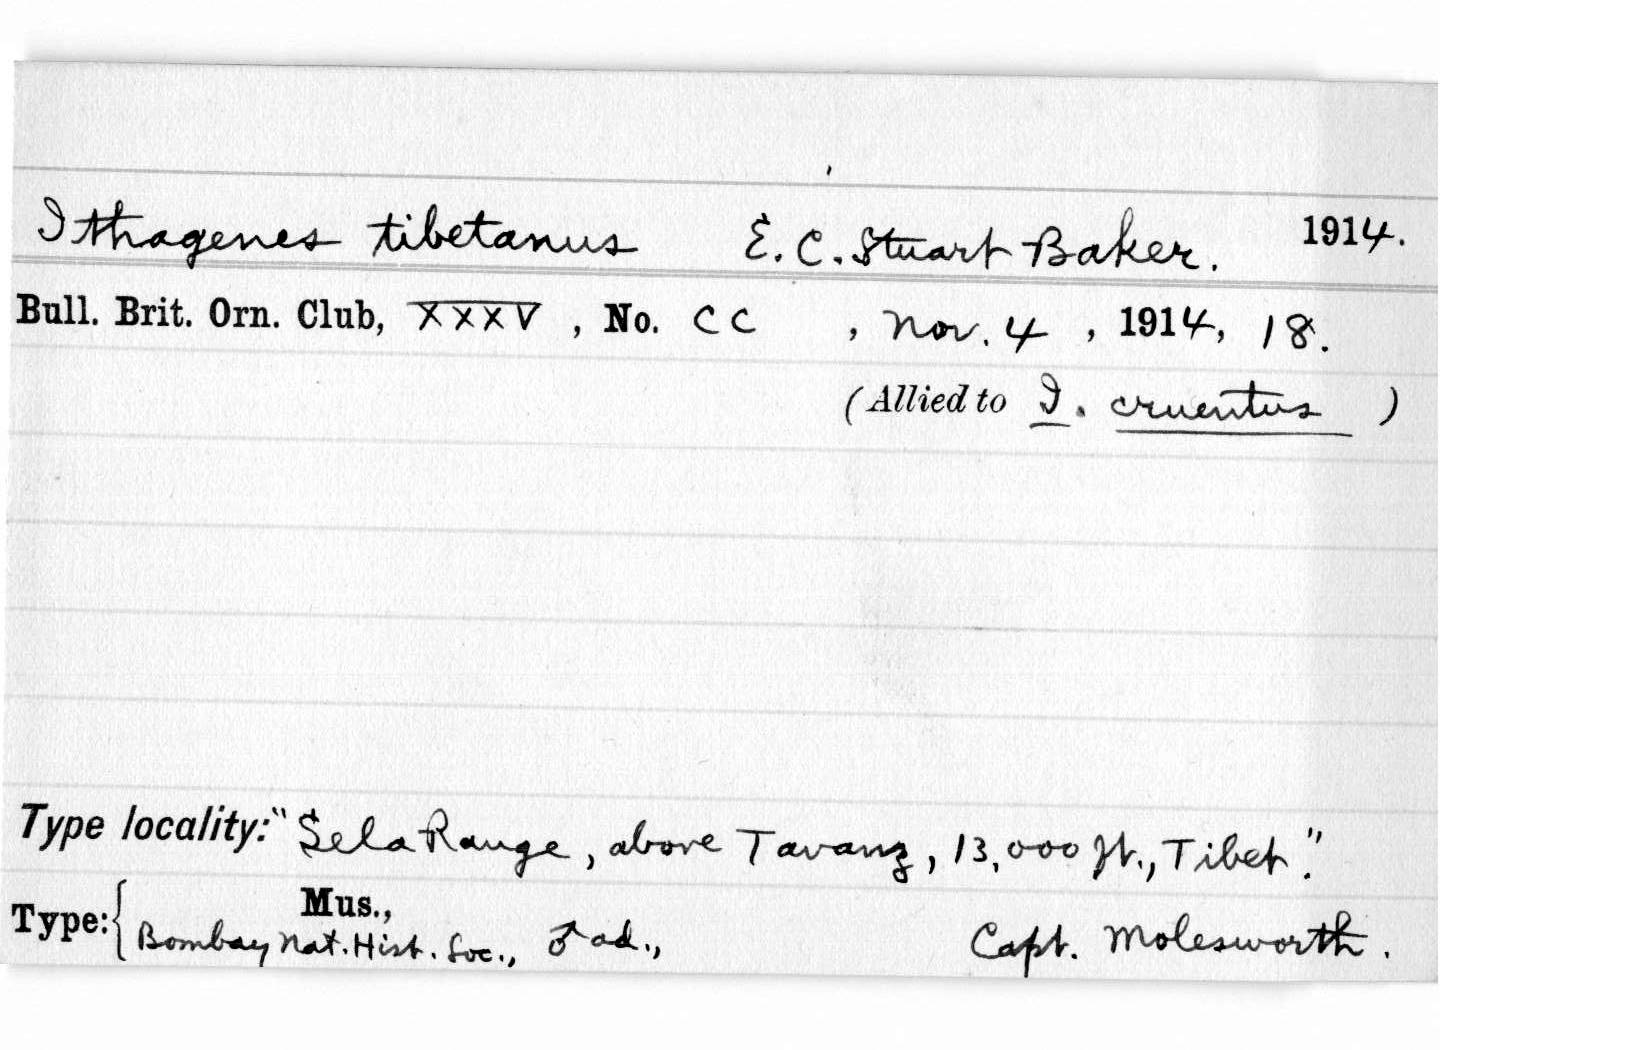 Ithagenes tibetanus E. C. Stuart Baker. 1914.
Bull. Brit. Orn. Club, XXXV, No. CC, Nov. 4, 1914, 18.
(Allied to I. cruentus)
Type locality: "Sela Range, above Tavang, 13,000 ft., Tibet."
Mus.,
Type: { Bombay Nat. Hist. Soc., ♂ ad., Capt. Molesworth.